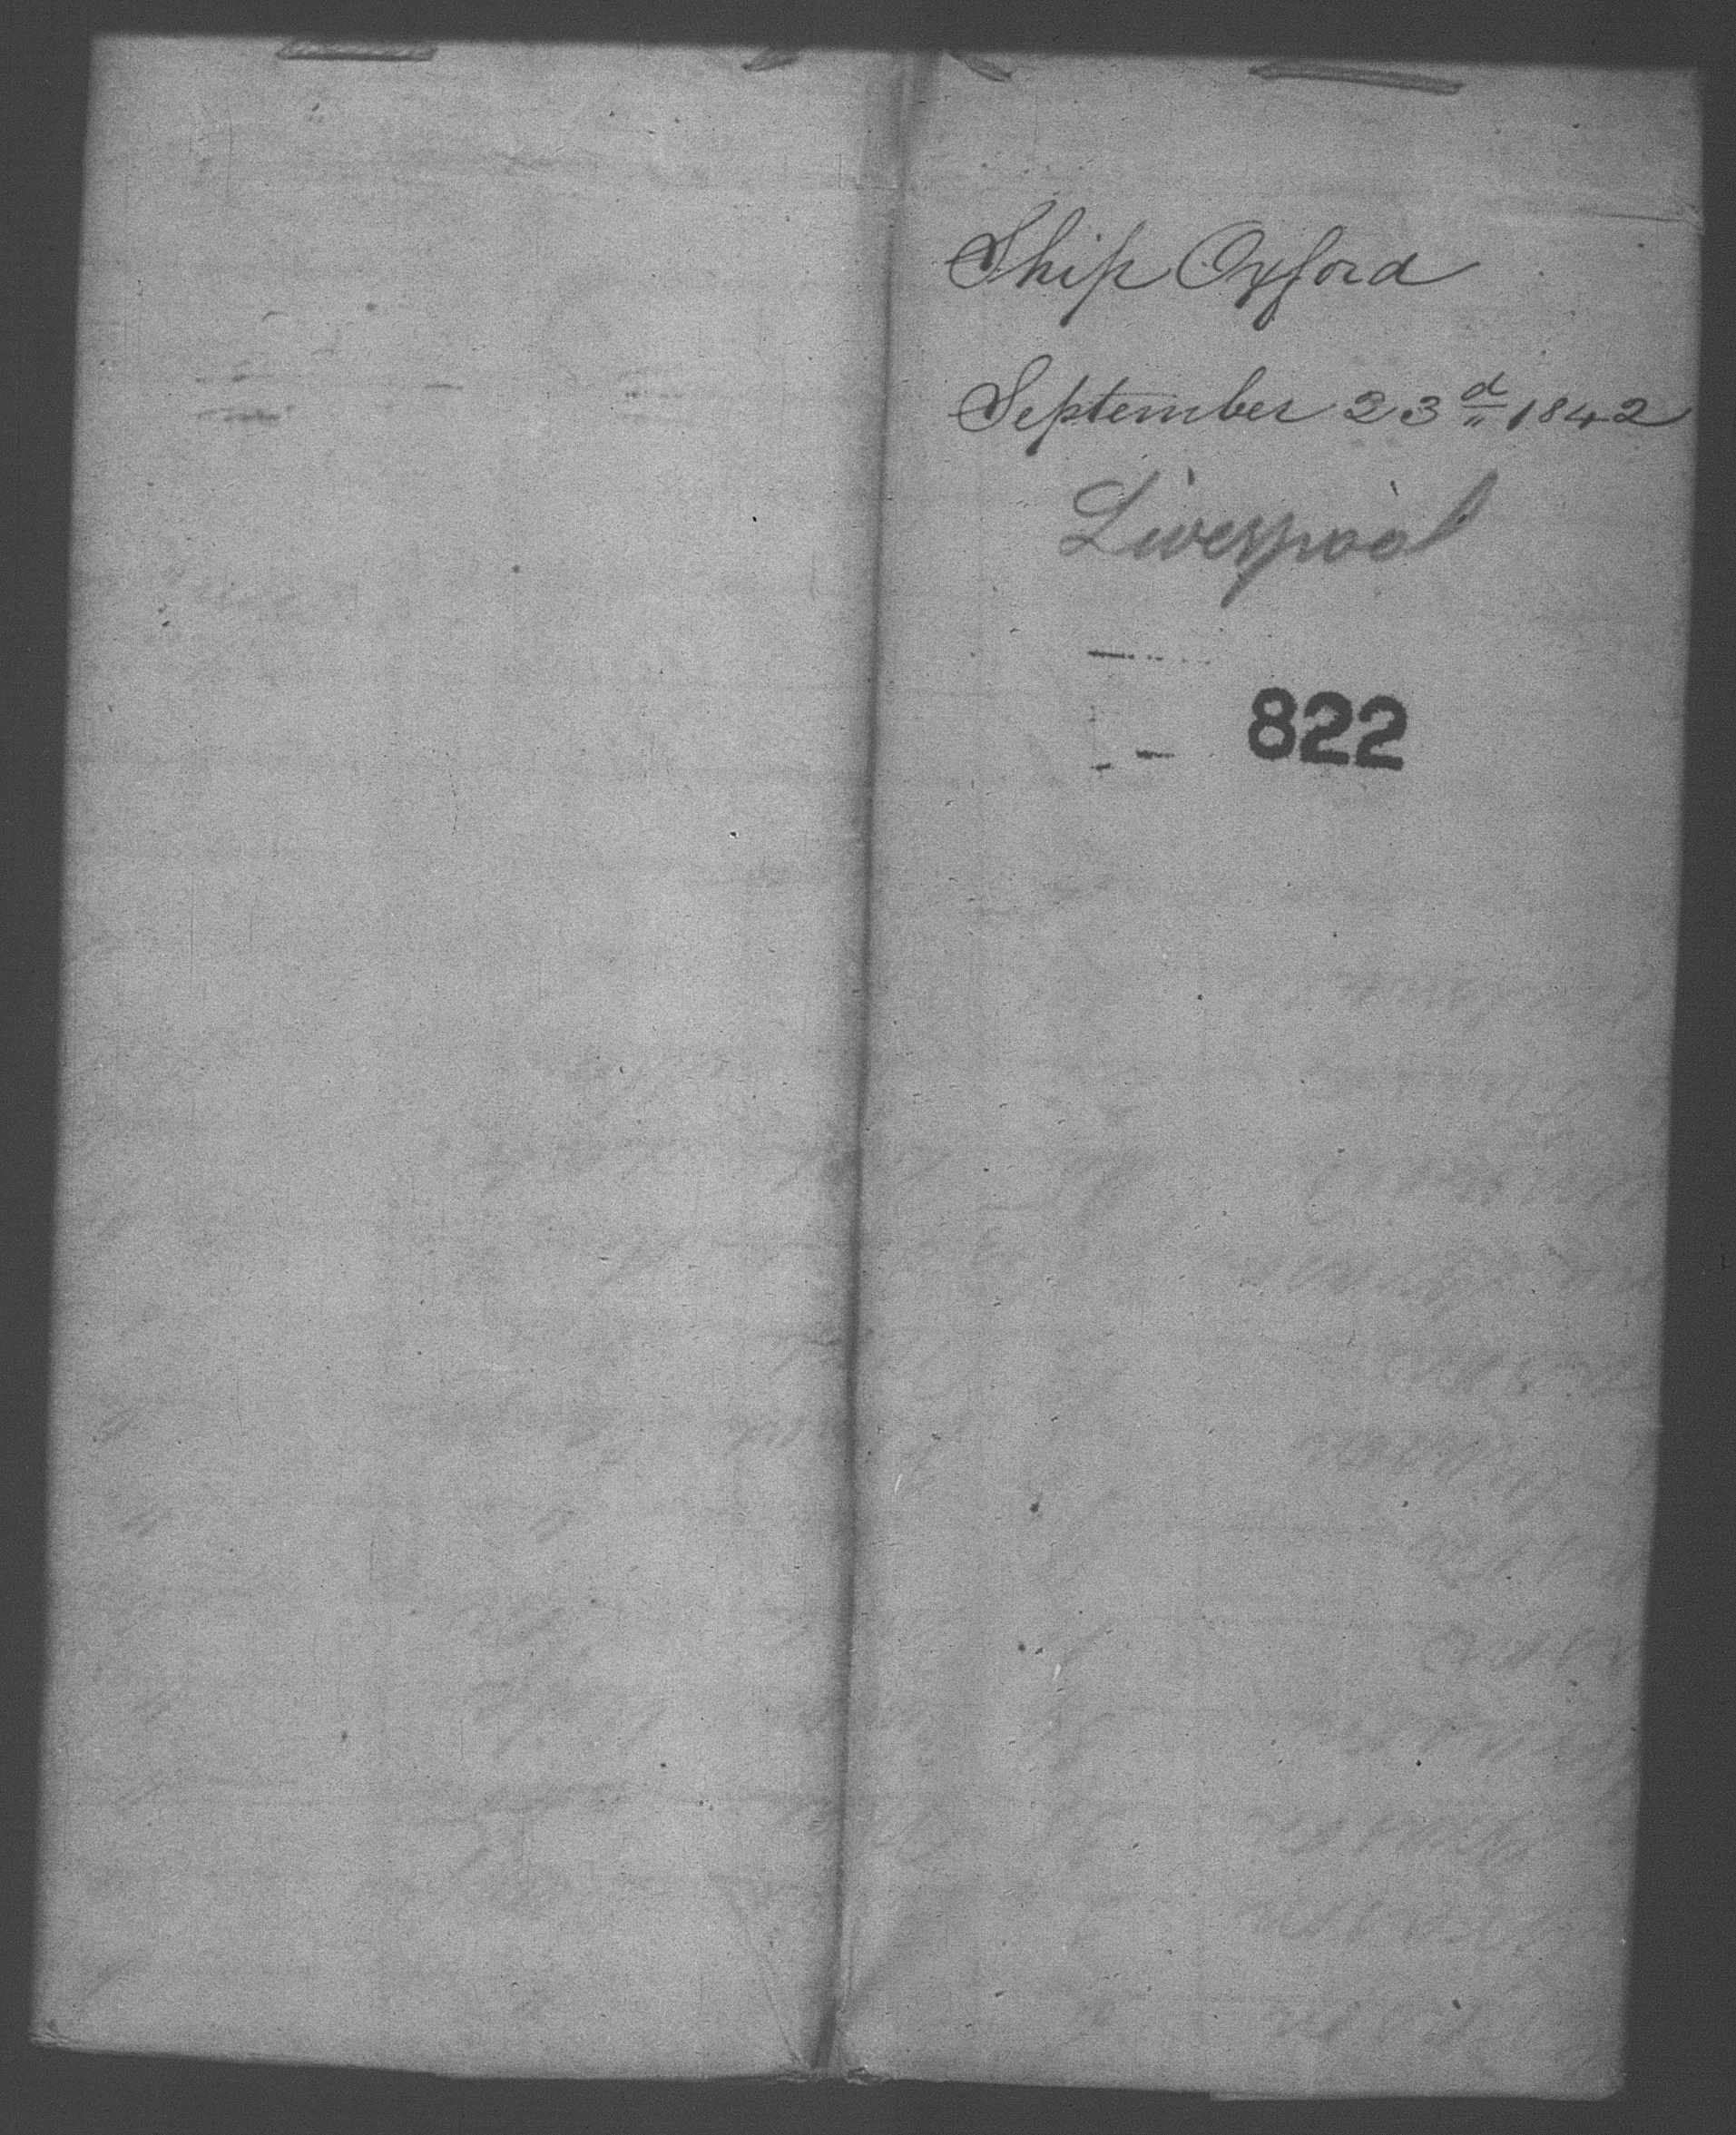 Ship Oxford
September 23d 1842
Liverpool
822